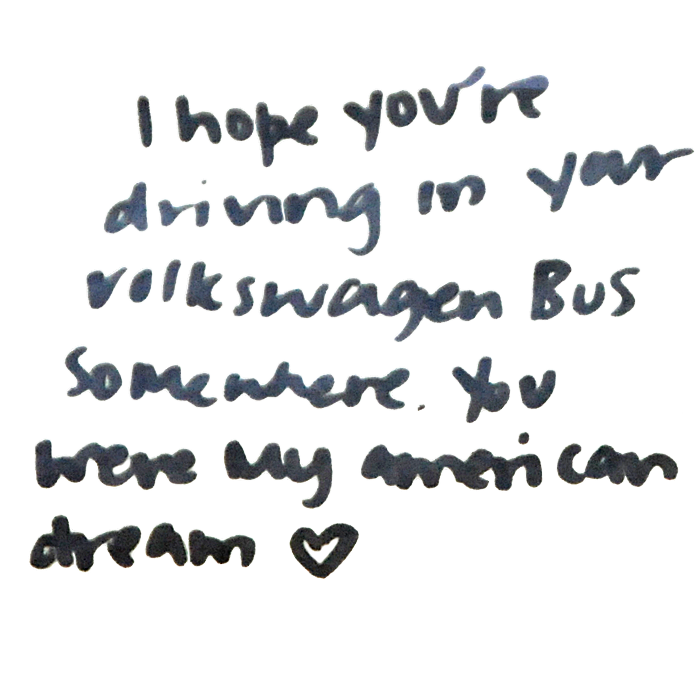 I hope you're
driving in your
volkswagen Bus
Somewhere. You
were my american
dream ♡